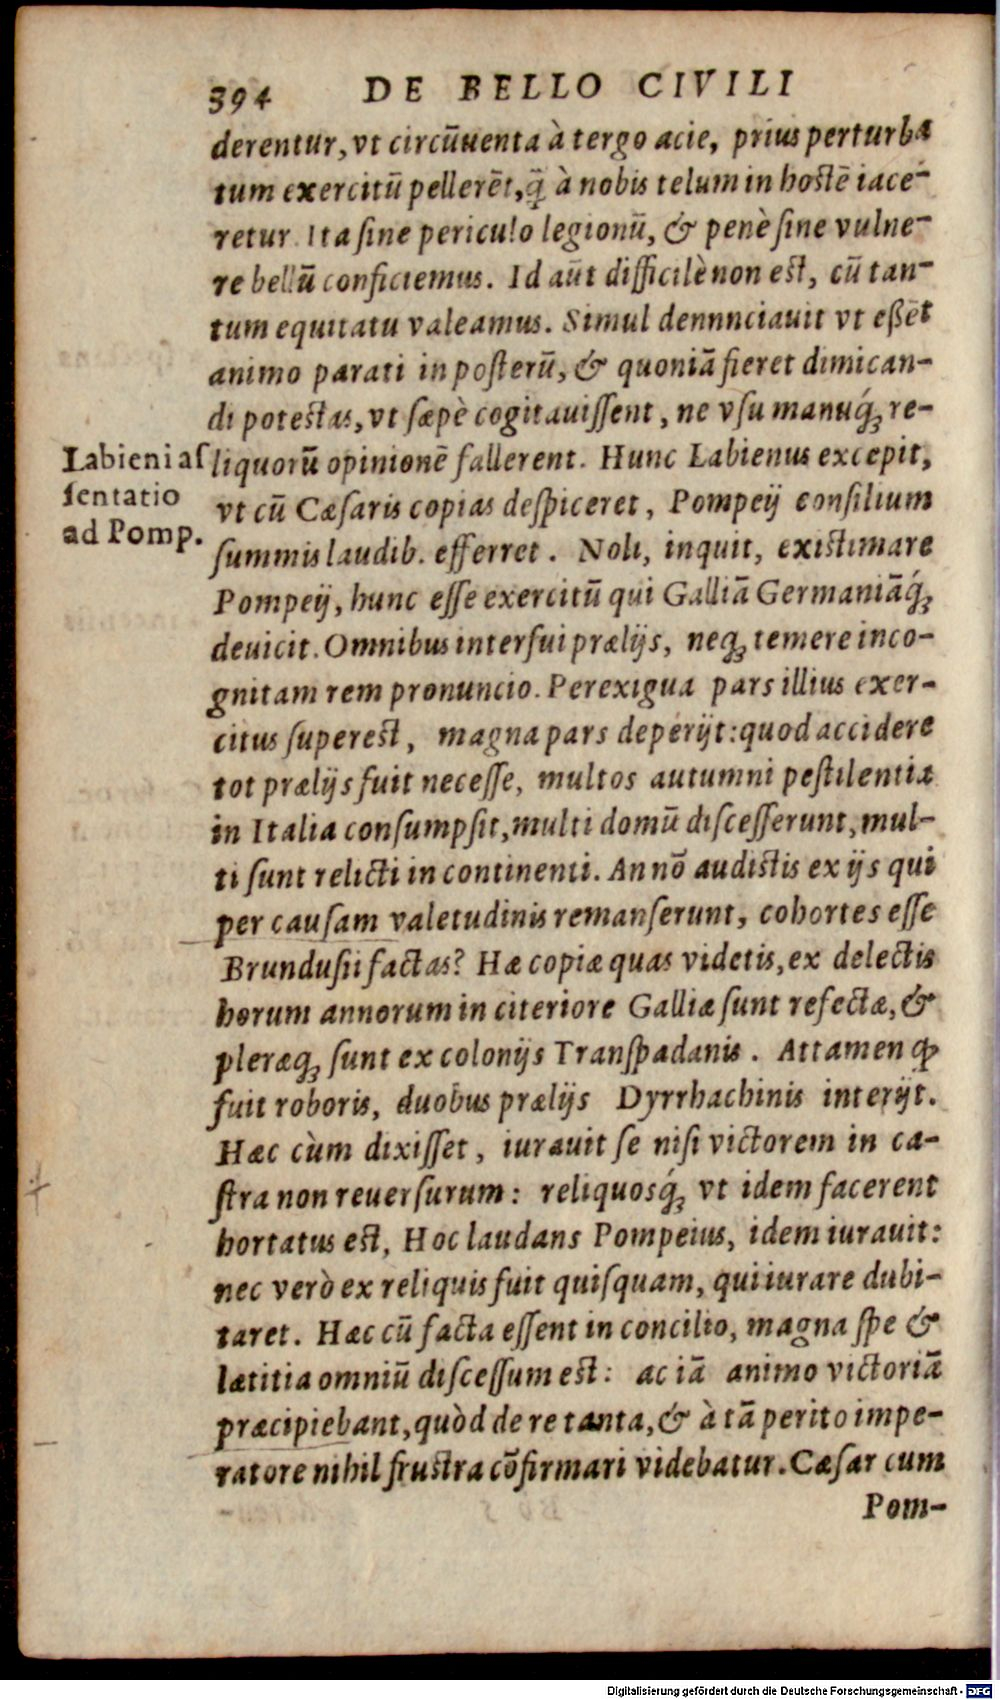 394 DE BELLO CIVILI
derentur, vt circũuenta à tergo acie, prius perturba
tum exercitũ pellerẽt, q̃ à nobis telum in hostẽ iace-
retur. Ita sine periculo legionũ, & penè sine vulne-
re bellũ conficiemus. Id aũt difficilè non est, cũ tan-
tum equitatu valeamus. Simul dennnciauit vt eßẽt
animo parati in posterũ, & quoniã fieret dimican-
di potestas, vt sæpè cogitauissent, ne vsu manuq́ꝫ re-
liquorũ opinionẽ fallerent. Hunc Labienus excepit,
vt cũ Cæsaris copias despiceret, Pompeij consilium
summis laudib. efferret. Noli, inquit, existimare
Pompeij, hunc esse exercitũ qui Galliã Germaniãq́ꝫ
deuicit. Omnibus interfui prælijs, neqꝫ temere inco-
gnitam rem pronuncio. Perexigua pars illius exer-
citus superest, magna pars deperijt: quod accidere
tot prælijs fuit necesse, multos autumni pestilentia
in Italia consumpsit, multi domũ discesserunt, mul-
ti sunt relicti in continenti. An nõ audistis ex ijs qui
per causam valetudinis remanserunt, cohortes esse
Brundusii factas? Hæ copiæ quas videtis, ex delectis
horum annorum in citeriore Galliæ sunt refectæ, &
pleræqꝫ sunt ex colonijs Transpadanis. Attamen ꝙ
fuit roboris, duobus prælijs Dyrrhachinis interijt.
Hæc cùm dixisset, iurauit se nisi victorem in ca-
stra non reuersurum: reliquosq́ꝫ vt idem facerent
hortatus est, Hoc laudans Pompeius, idem iurauit:
nec verò ex reliquis fuit quisquam, qui iurare dubi-
taret. Hæc cũ facta essent in concilio, magna spe &
lætitia omniũ discessum est: ac iã animo victoriã
præcipiebant, quòd de re tanta, & à tã perito impe-
ratore nihil frustra cõfirmari videbatur. Cæsar cum
Pom-
Labieni as
sentatio
ad Pomp.
Digitalisierung gefördert durch die Deutsche Forschungsgemeinschaft - DFG